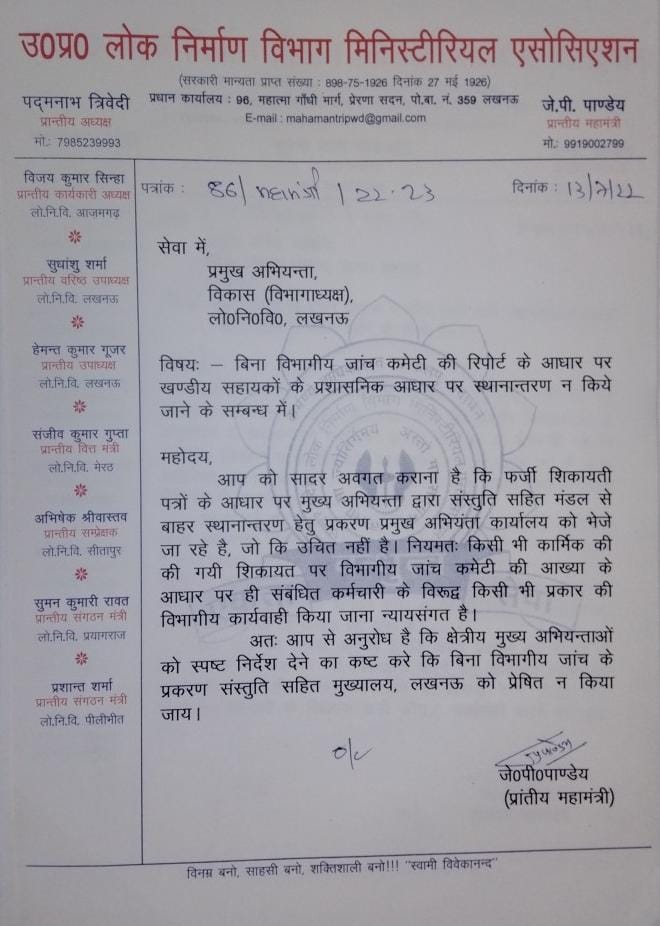 उ0प्र0 लोक निर्माण विभाग मिनिस्टीरियल एसोसिएशन
(सरकारी मान्यता प्राप्त संख्या : 898-75-1926 दिनांक 27 मई 1926)
प्रधान कार्यालय : 96, महात्मा गाँधी मार्ग, प्रेरणा सदन, पो.बा. नं. 359 लखनऊ
E-mail : mahamantripwd@gmail.com
पद्मनाभ त्रिवेदी
प्रान्तीय अध्यक्ष
मो.: 7985239993
जे.पी. पाण्डेय
प्रान्तीय महामंत्री
मो.: 9919002799
विजय कुमार सिन्हा
प्रान्तीय कार्यकारी अध्यक्ष
लो.नि.वि. आजमगढ़
सुधांशु शर्मा
प्रान्तीय वरिष्ठ उपाध्यक्ष
लो.नि.वि. लखनऊ
हेमन्त कुमार गूजर
प्रान्तीय उपाध्यक्ष
लो.नि.वि. लखनऊ
संजीव कुमार गुप्ता
प्रान्तीय वित्त मंत्री
लो.नि.वि. मेरठ
अभिषेक श्रीवास्तव
प्रान्तीय सम्प्रेक्षक
लो.नि.वि. सीतापुर
सुमन कुमारी रावत
प्रान्तीय संगठन मंत्री
लो.नि.वि. प्रयागराज
प्रशान्त शर्मा
प्रान्तीय संगठन मंत्री
लो.नि.वि. पीलीभीत
पत्रांक : 86/ / 22-23
दिनांक : 13/7/22
सेवा में,
प्रमुख अभियन्ता,
विकास (विभागाध्यक्ष),
लो0नि0वि0, लखनऊ
विषयः – बिना विभागीय जांच कमेटी की रिपोर्ट के आधार पर
खण्डीय सहायकों के प्रशासनिक आधार पर स्थानान्तरण न किये
जाने के सम्बन्ध में।
महोदय,
आप को सादर अवगत कराना है कि फर्जी शिकायती
पत्रों के आधार पर मुख्य अभियन्ता द्वारा संस्तुति सहित मंडल से
बाहर स्थानान्तरण हेतु प्रकरण प्रमुख अभियंता कार्यालय को भेजे
जा रहे है, जो कि उचित नहीं है। नियमतः किसी भी कार्मिक की
की गयी शिकायत पर विभागीय जांच कमेटी की आख्या के
आधार पर ही संबंधित कर्मचारी के विरूद्व किसी भी प्रकार की
विभागीय कार्यवाही किया जाना न्यायसंगत है।
अतः आप से अनुरोध है कि क्षेत्रीय मुख्य अभियन्ताओं
को स्पष्ट निर्देश देने का कष्ट करे कि बिना विभागीय जांच के
प्रकरण संस्तुति सहित मुख्यालय, लखनऊ को प्रेषित न किया
जाय।
o/c
जे0पी0पाण्डेय
(प्रांतीय महामंत्री)
विनम्र बनो, साहसी बनो, शक्तिशाली बनो!!! "स्वामी विवेकानन्द"